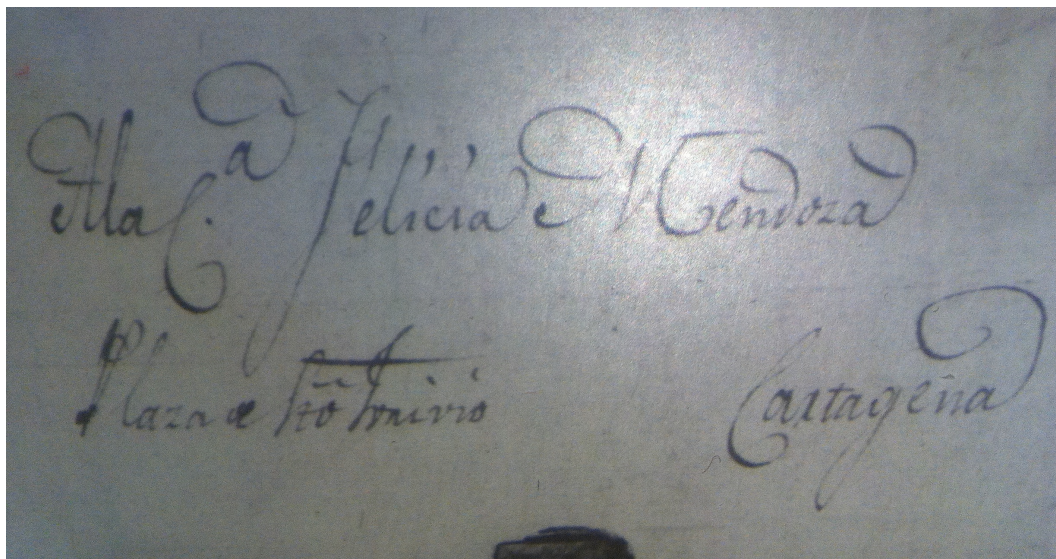 A la C.ª Felicia de Mendoza
Plaza de Stõ Toribio Cartagena